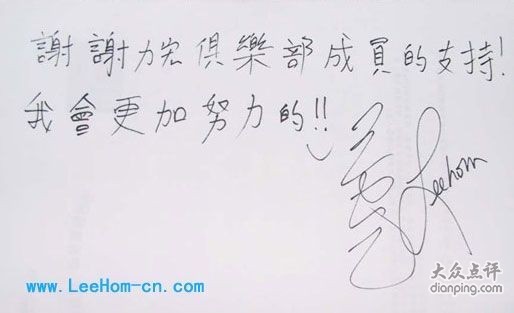 謝謝力宏俱樂部成員的支持!
我會更加努力的!!
Leehom
www.LeeHom-cn.com
大众点评
dianping.com